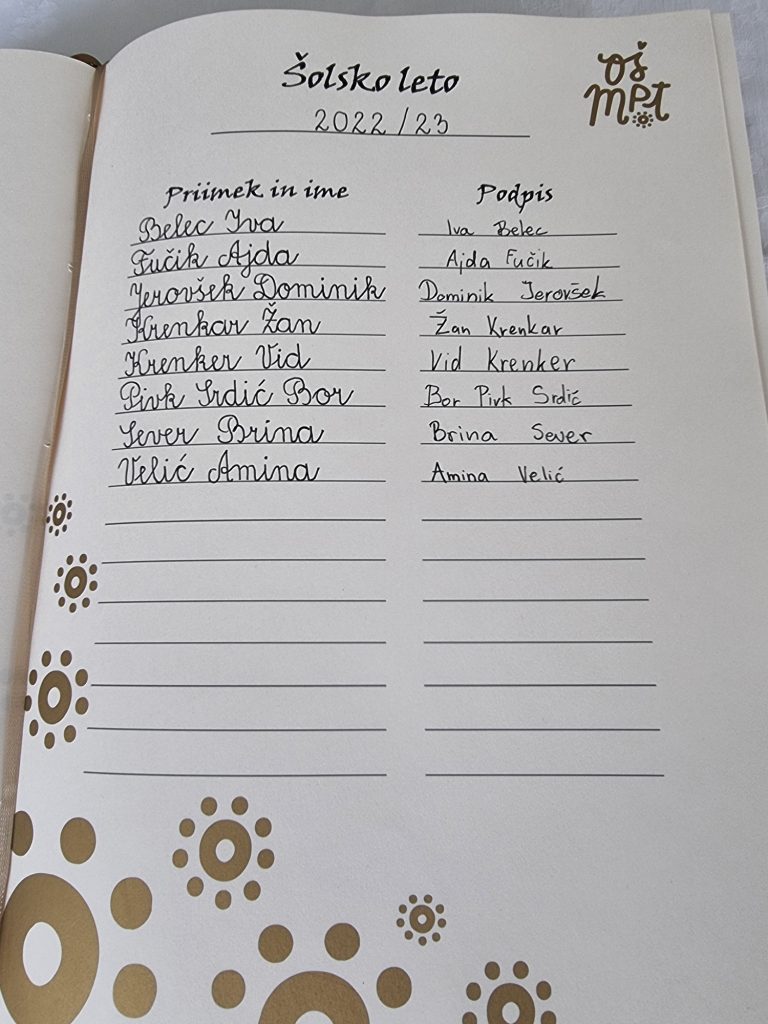 Šolsko leto
OŠ
MPT
2022/23
Priimek in ime Podpis
Belec Iva Iva Belec
Fučik Ajda Ajda Fučik
Jerovšek Dominik Dominik Jerovšek
Krenkar Žan Žan Krenkar
Krenker Vid Vid Krenker
Pivk Srdić Bor Bor Pivk Srdić
Sever Brina Brina Sever
Velić Amina Amina Velić